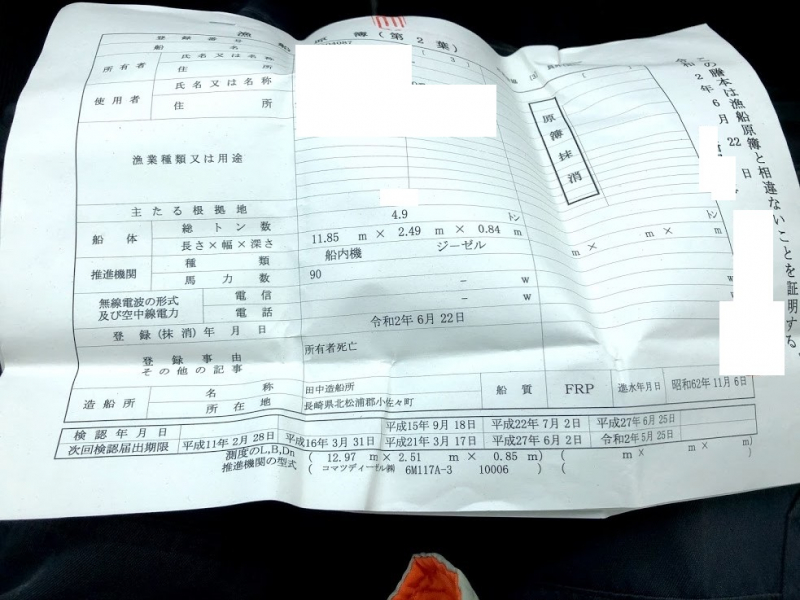 漁船原簿(第2葉)
登録番号
船名
( 3 )
所有者 氏名又は名称
住所
使用者 氏名又は名称
住所
原簿抹消
漁業種類又は用途
主たる根拠地
船体 総トン数 4.9 トン トン
長さ×幅×深さ 11.85 m × 2.49 m × 0.84 m m × m × m
推進機関 種類 船内機 ジーゼル
馬力数 90
無線電波の形式及び空中線電力 電信 - w w
電話 - w w
登録(抹消)年月日 令和2年6月22日
登録事由その他の記事 所有者死亡
造船所 名称 田中造船所 船質 FRP 進水年月日 昭和62年11月6日
所在地 長崎県北松浦郡小佐々町
検認年月日 平成15年9月18日 平成22年7月2日 平成27年6月25日
次回検認届出期限 平成11年2月28日 平成16年3月31日 平成21年3月17日 平成27年6月2日 令和2年5月25日
測度のL,B,Dn ( 12.97 m × 2.51 m × 0.85 m) ( m × m × m)
推進機関の型式 ( コマツディーゼル㈱ 6M117A-3 10006 ) ( )
この謄本は漁船原簿と相違ないことを証明する。
令和2年6月22日